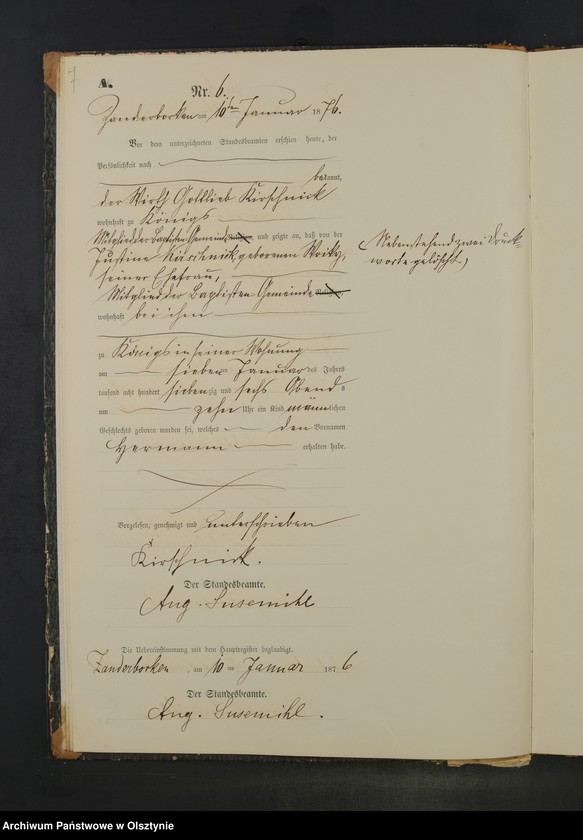 7
A.
Nr. 6.
Zanderborken am 10ten Januar 1876.
Vor dem unterzeichneten Standesbeamten erschien heute, der
Persönlichkeit nach
bekannt,
der Wirth Gottlieb Kirschnick
wohnhaft zu Königs
Mitglied der Baptisten Gemeinde Religion, und zeigte an, daß von der
Justine Kirschnick, geborenen
seiner Ehefrau,
Mitglied der Baptisten Gemeinde Religion,
wohnhaft bei ihm
(Nebenstehend zwei Druck=
worte gelöscht.)
zu Königs in seiner Wohnung
am sieben ten Januar des Jahres
tausend acht hundert siebenzig und sechs Abends
um zehn Uhr ein Kind männlichen
Geschlechts geboren worden sei, welches den Vornamen
Hermann erhalten habe.
Vorgelesen, genehmigt und unterschrieben
Kirschnick.
Der Standesbeamte.
Aug. Susemihl
Die Uebereinstimmung mit dem Hauptregister beglaubigt.
Zanderborken, am 10 ten Januar 1876
Der Standesbeamte.
Aug. Susemihl.
Archiwum Państwowe w Olsztynie